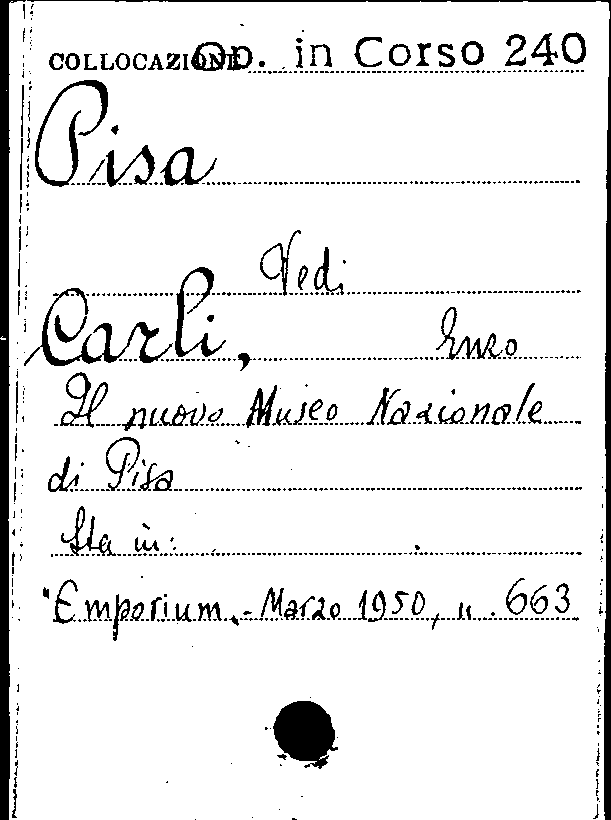 COLLOCAZIONE Op. in Corso 240
Pisa
Vedi
Carli, Enzo
Il nuovo Museo Nazionale
di Pisa
Sta in:
"Emporium„- Marzo 1950, n. 663